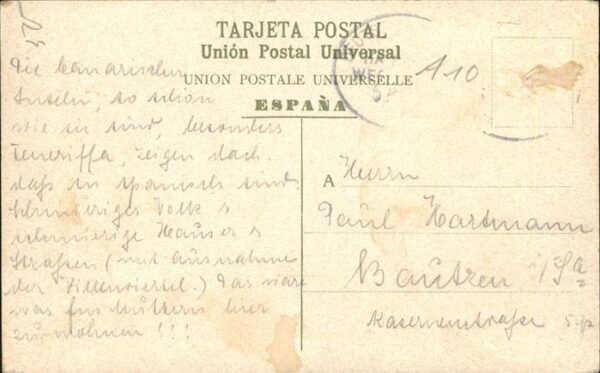 TARJETA POSTAL
Unión Postal Universal
UNION POSTALE UNIVERSELLE
ESPAÑA
A 10
Die Canarischen
Inseln, so schön
wie sie sind, besonders
Teneriffa, zeigen doch
daß sie spanisch sind.
Schmieriges Volk &
schmierige Häuser &
Straßen (mit Ausnahme
der Villenviertel.) Das wäre
was für Muttern hier
zu wohnen!!!
A Herrn
Paul Hartmann
Bautzen i/Sa
Kasernenstraße